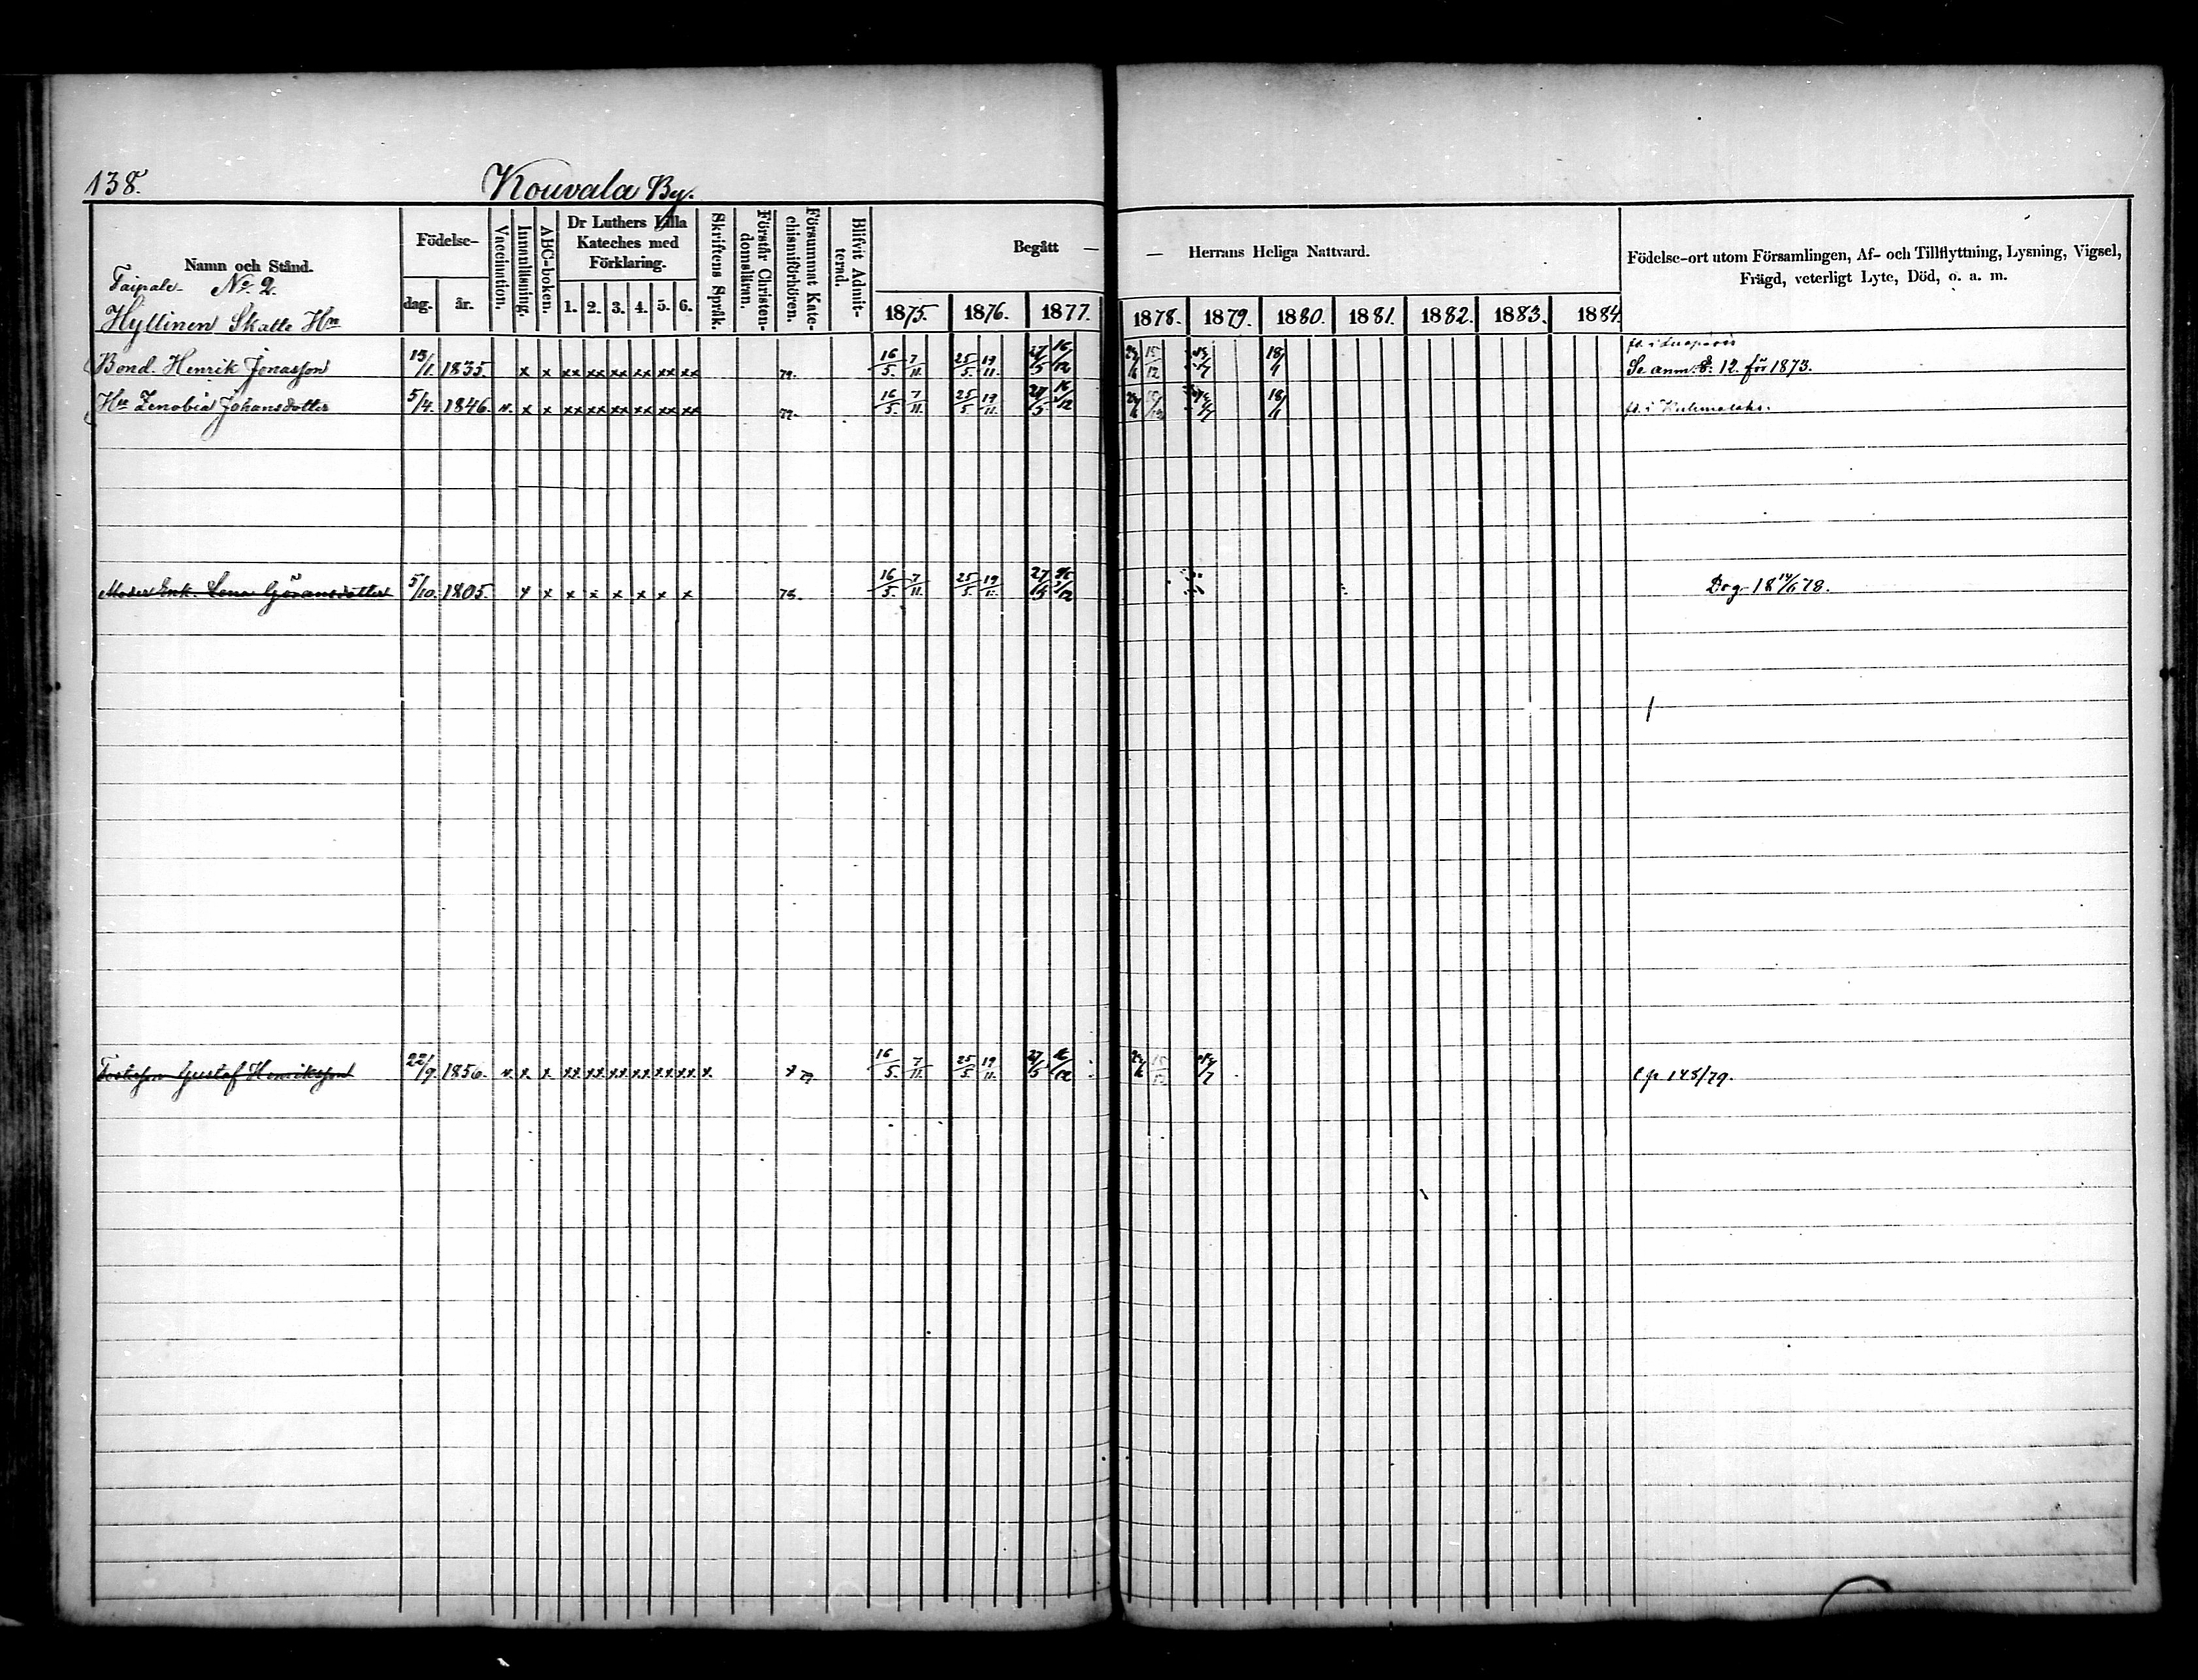 138.
Kouvala By.
Namn och Stånd.
Taipale No 2.
Hyttinen Skatte Hn
Födelse-
dag. år.
Vaccination.
Innanläsning.
ABC-boken.
Dr Luthers Lilla
Kateches med
Förklaring.
1. 2. 3. 4. 5. 6.
Skriftens Språk.
Förstår Christen-
domsläran.
Försummat Kate-
chismiförhören.
Blifvit Admit-
terad.
Begått —
— Herrans Heliga Nattvard.
1875. 1876. 1877. 1878. 1879. 1880. 1881. 1882. 1883. 1884
Födelse-ort utom Församlingen, Af- och Tillflyttning, Lysning, Vigsel,
Frägd, veterligt Lyte, Död, o. a. m.
Bond. Henrik Jonasson 13/1. 1835. x x xx xx xx xx xx xx 79. 16/5. 7/11. 25/5. 19/11. 27/5 16/12 15/12 18/1 Se anm. S. 12. för 1873.
Hu Zenobia Johansdotter 5/4. 1846. v. x x xx xx xx xx xx xx 16/5. 7/11. 25/5. 19/11. 27/5 16/12 18/1 fd. i
Moder Enk. Lena Göransdotter 5/10. 1805. x x x x x x x x 16/5. 7/11. 25/5. 19/11. 27/5 Dog 18 78.
Gustaf Henriksson 22/9. 1856. v. x x xx xx xx xx xx xx x. x 79. 16/5. 7/11. 25/5. 19/11. 27/5 15/12 148/79.